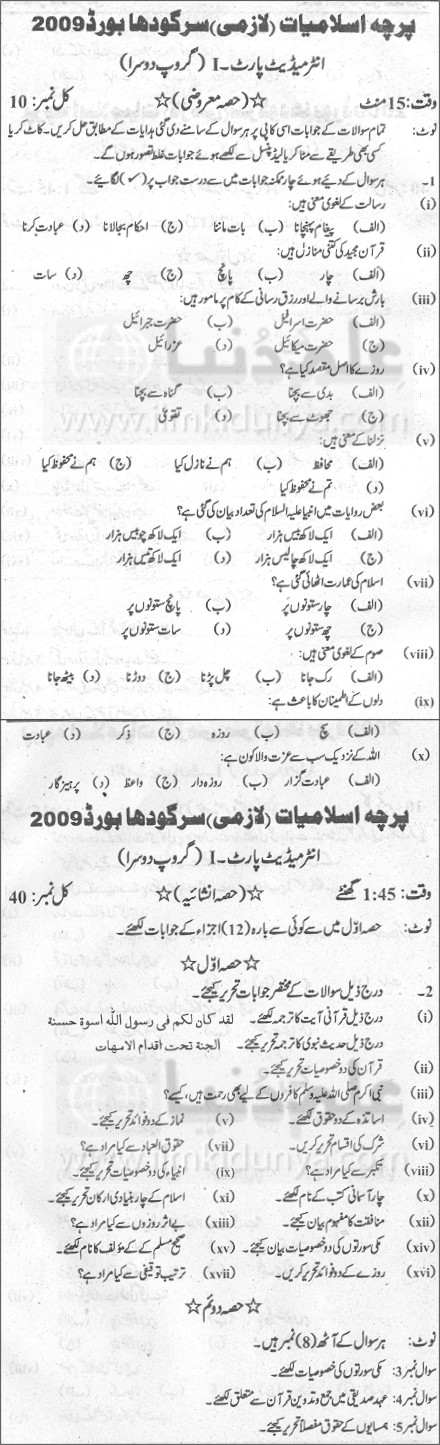 پرچہ اسلامیات (لازمی) سرگودھا بورڈ 2009
انٹرمیڈیٹ پارٹ۔ I (گروپ دوسرا)
وقت: 15 منٹ ☆(حصہ معروضی)☆ کل نمبر: 10
نوٹ: تمام سوالات کے جوابات اسی کاپی پر ہر سوال کے سامنے دی گئی ہدایات کے مطابق حل کریں۔ کاٹ کر یا
کسی بھی طریقے سے مٹا کر یا لیڈ پنسل سے لکھے ہوئے جوابات غلط تصور ہوں گے۔
1۔ ہر سوال کے دیے ہوئے چار ممکنہ جوابات میں سے درست جواب پر (✓) لگائیے۔
(i) رسالت کے لغوی معنی ہیں:
(الف) پیغام پہنچانا (ب) بات ماننا (ج) احکام بجالانا (د) عبادت کرنا
(ii) قرآن مجید کی کتنی منازل ہیں:
(الف) چار (ب) پانچ (ج) چھ (د) سات
(iii) بارش برسانے والے اور رزق رسانی کے کام پر مامور ہیں:
(الف) حضرت اسرافیل (ب) حضرت جبرائیل
(ج) حضرت میکائیل (د) عزرائیل
(iv) روزے کا اصل مقصد کیا ہے؟
(الف) بدی سے بچنا (ب) گناہ سے بچنا
(ج) جھوٹ سے بچنا (د) تقویٰ
(v) نزلنا کے معنی ہیں:
(الف) محافظ (ب) ہم نے نازل کیا (ج) ہم نے محفوظ کیا
(د) تم نے محفوظ کیا
(vi) بعض روایات میں انبیا علیہ السلام کی تعداد بیان کی گئی ہے؟
(الف) ایک لاکھ بیس ہزار (ب) ایک لاکھ چوبیس ہزار
(ج) ایک لاکھ چالیس ہزار (د) ایک لاکھ تیس ہزار
(vii) اسلام کی عمارت اٹھائی گئی ہے؟
(الف) چار ستونوں پر (ب) پانچ ستونوں پر
(ج) چھ ستونوں پر (د) سات ستونوں پر
(viii) صوم کے لغوی معنی ہیں:
(الف) رک جانا (ب) چل پڑنا (ج) دوڑنا (د) بیٹھ جانا
(ix) دلوں کے اطمینان کا باعث ہے:
(الف) سچ (ب) روزہ (ج) ذکر (د) عبادت
(x) اللہ کے نزدیک سب سے عزت والا کون ہے:
(الف) عبادت گزار (ب) روزہ دار (ج) واعظ (د) پرہیزگار
پرچہ اسلامیات (لازمی) سرگودھا بورڈ 2009
انٹرمیڈیٹ پارٹ۔ I (گروپ دوسرا)
وقت: 1:45 گھنٹے ☆(حصہ انشائیہ)☆ کل نمبر: 40
نوٹ: حصہ اوّل میں سے کوئی سے بارہ (12) اجزاء کے جوابات لکھئے۔
☆حصہ اول☆
2۔ درج ذیل سوالات کے مختصر جوابات تحریر کیجئے۔
(i) درج ذیل قرآنی آیت کا ترجمہ لکھئے۔ لقد کان لکم فی رسول اللہ اسوۃ حسنۃ
درج ذیل حدیث نبوی کا ترجمہ تحریر کیجئے۔ الجنۃ تحت اقدام الامہات
(ii) قرآن کی دو خصوصیات تحریر کیجئے۔
(iii) نبی اکرم صلی اللہ علیہ وسلم کافروں کے لیے بھی رحمت ہیں، کیسے؟
(iv) اساتذہ کے دو حقوق لکھئے۔ (v) نماز کے دو فوائد تحریر کیجئے۔
(vi) شرک کی اقسام تحریر کریں۔ (vii) حقوق العباد سے کیا مراد ہے؟
(viii) تکبر سے کیا مراد ہے؟ (ix) انبیاء کی دو خصوصیات تحریر کیجئے۔
(x) چار آسمانی کتب کے نام لکھئے۔ (xi) اسلام کے چار بنیادی ارکان تحریر کیجئے۔
(xii) منافقت کا مفہوم بیان کیجئے۔ (xiii) بے اثر روزوں سے کیا مراد ہے؟
(xiv) مکی سورتوں کی دو خصوصیات بیان کیجئے۔ (xv) صحیح مسلم کے کے مؤلف کا نام لکھئے۔
(xvi) روزے کے دو فوائد تحریر کریں۔ (xvii) ترتیب توقیفی سے کیا مراد ہے؟
☆حصہ دوئم☆
نوٹ: ہر سوال کے آٹھ (8) نمبر ہیں۔
سوال نمبر 3: مکی سورتوں کی خصوصیات لکھئے۔
سوال نمبر 4: عہد صدیقی میں جمع و تدوین قرآن سے متعلق لکھئے۔
سوال نمبر 5: ہمسایوں کے حقوق مفصلاً تحریر کیجئے۔
علم کی دنیا
www.ilmkidunya.com